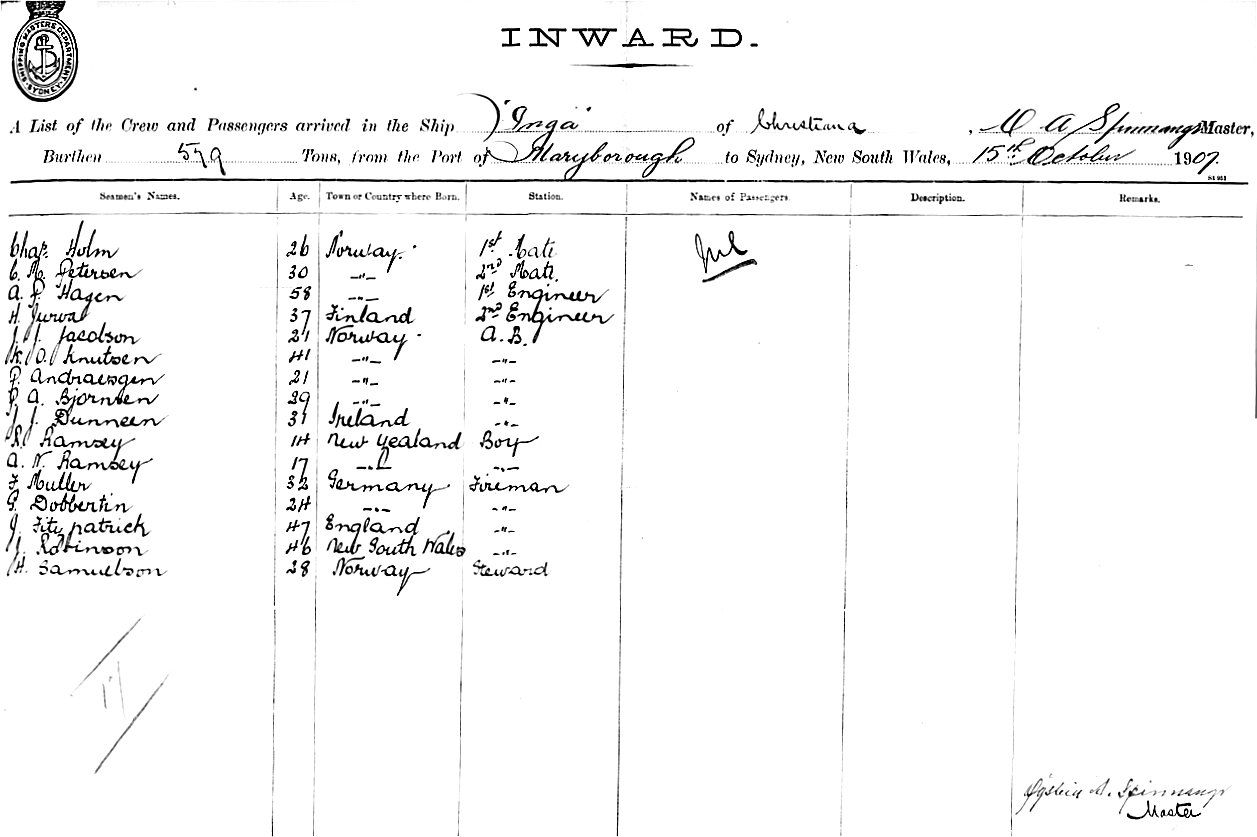 SHIPPING MASTERS DEPARTMENT SYDNEY
INWARD.
A List of the Crew and Passengers arrived in the Ship "Inga" of Christiana, O A Spinnangr Master,
Burthen 579 Tons, from the Port of Maryborough to Sydney, New South Wales, 15th October 1907.
S1 951
Seamen's Names. Age. Town or Country where Born. Station. Names of Passengers. Description. Remarks.
Chas. Holm 26 Norway. 1st Mate Nil
C. M. Petersen 30 -"- 2nd Mate.
A. P. Hagen 58 -"- 1st Engineer
H. Jurva 37 Finland 2nd Engineer
J. J. Jacobson 21 Norway A.B.
K. O. Knutsen 41 -"- -"-
P. Andraesgen 21 -"- -"-
P. A. Bjornsen 29 -"- -"-
J. J. Dunneen 31 Ireland -"-
R. Ramsey 14 New Zealand Boy
A. N. Ramsey 17 -"- -"-
F. Muller 32 Germany Fireman
G. Dobbertin 24 -"- -"-
J. Fitzpatrick 47 England -"-
J. Robinson 46 New South Wales -"-
H. Samuelson 28 Norway Steward
17
Øystein A. Spinnangr
Master